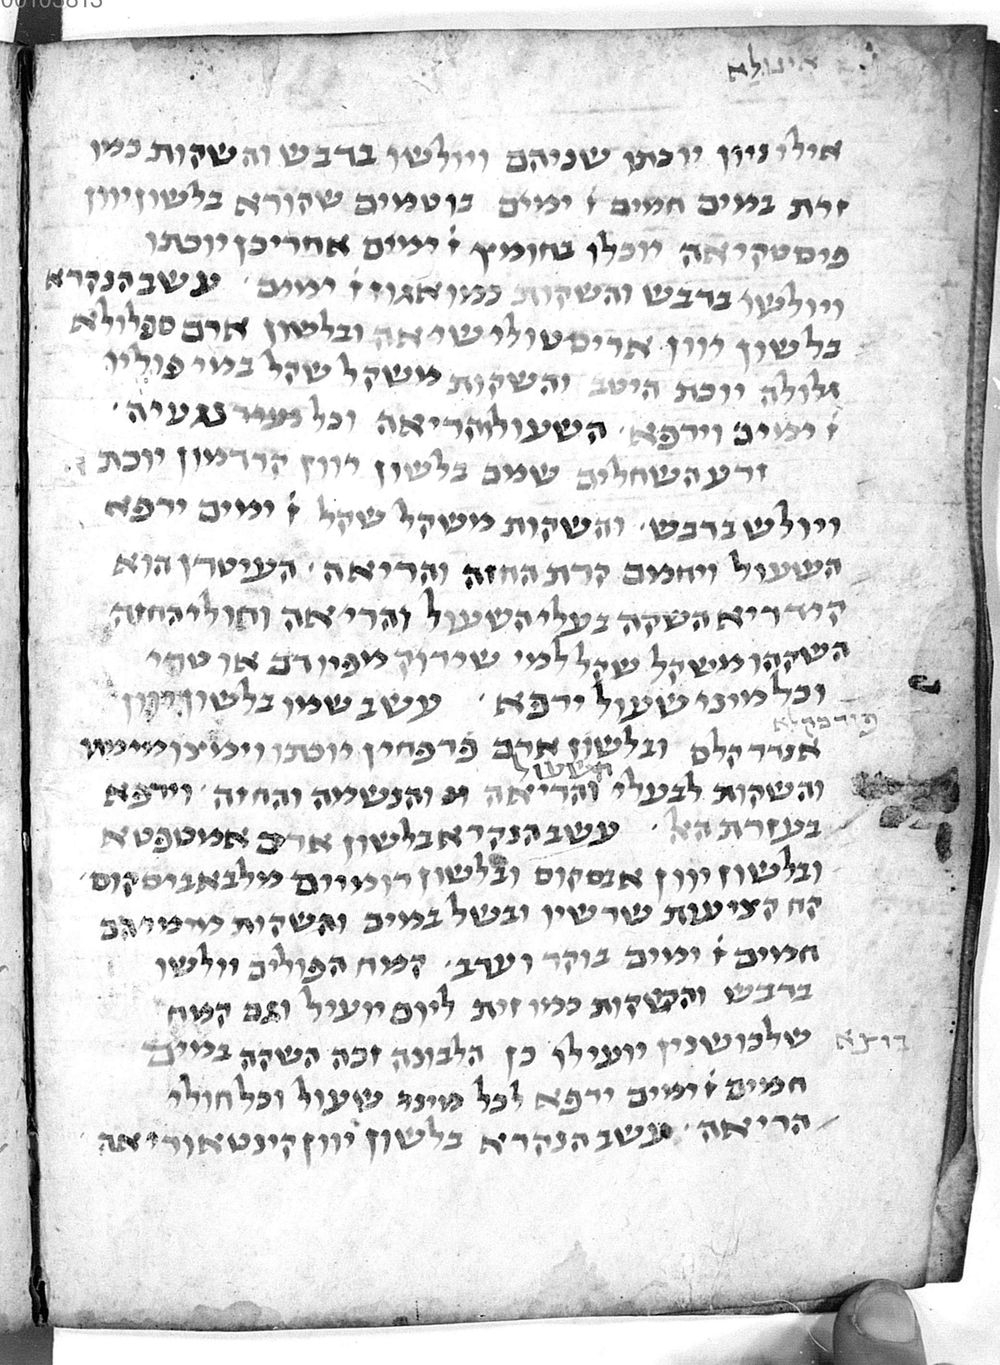 00105813
אינולא
איליניון יוכתו שניהם ויולשו בדבש והשקות כמו
זית במים חמים ז̇ ימים בוטמים שקורא בלשון יוון
פיסטקיאה יוכלו בחומץ ז̇ ימים אחריכן יוכתו
ויולשו בדבש והשקות כמו אגוז ז̇ ימים עשב הנקרא
בלשון יוון אריסטולישיאה ובלשון ארם ספלולא
גלולה יוכת היטב והשקות משקל שקל במי פוליו
ז̇ ימים וירפא השעול והריאה וכל נגעיה
זרע השחלים שמם בלשון יוון קרדמון יוכת
ויולש בדבש והשקות משקל שקל ז̇ ימים ירפא
השעול ויחמם קרת החזה והריאה העיטרן הוא
קידריא השקה בעלי השעול והריאה וחולי החזה
השקהו משקל שקל למי שירוק מפיו דם או
וכל מיני שעול ירפא עשב שמו בלשון יוון
פורפקלא
אנדרקלס ובלשון ארם פרפחין יוכתו וימצון מימיו
השעול
והשקות לבעלי והריאה והנשמה והחזה וירפא
בעזרת האל עשב הנקרא בלשון ארם אמטפטא
ובלשון יוון אבסקוס ובלשון רומיים מלבאביסקוס
קח קציעות שרשיו ובשל במים והשקות מימיהם
חמים ז̇ ימים בוקר וערב קמח הפולים יולשו
בדבש והשקות כמו זית ליום יועיל וגם קמח
שלכושנין יועילו כן הלבונה זכה השקה במים
בוצא
חמים ז̇ ימים ירפא לכל מיני שעול וכל חולי
הריאה עשב הנקרא בלשון יוון קינטאוריאה